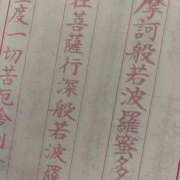 摩訶般若波羅蜜多
在菩薩行深般若波羅
度一切苦厄舍利